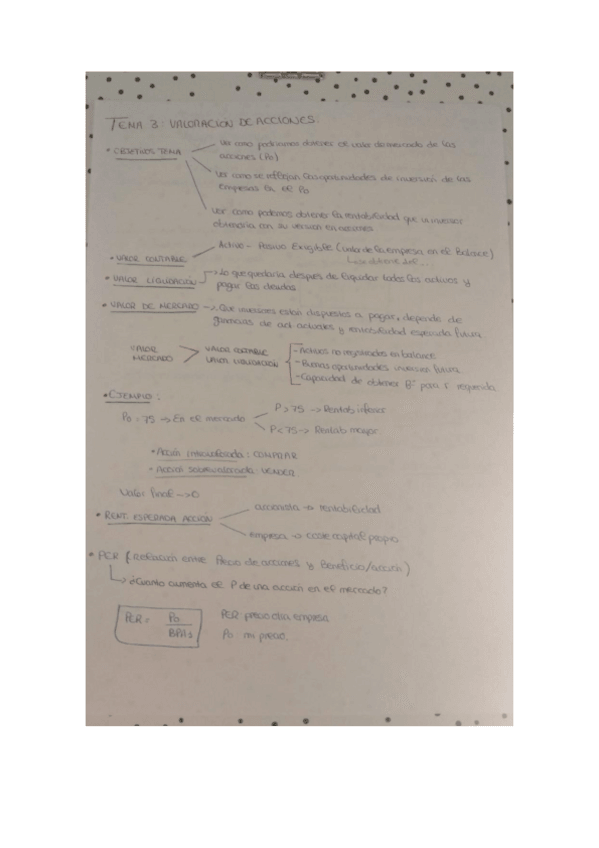 TEMA 3: VALORACIÓN DE ACCIONES:
• OBJETIVOS TEMA
Ver como podríamos obtener el valor de mercado de las
acciones (Po)
Ver como se reflejan las oportunidades de inversión de las
empresas en el Po
Ver como podemos obtener la rentabilidad que un inversor
obtendría con su inversión en acciones
• VALOR CONTABLE
Activo - Pasivo Exigible (valor de la empresa en el Balance)
• VALOR LIQUIDACIÓN
Lo que quedaría después de liquidar todos los activos y
pagar las deudas
• VALOR DE MERCADO -> Que inversores están dispuestos a pagar, depende de
ganancias de act. actuales y rentabilidad esperada futura.
VALOR
MERCADO > VALOR CONTABLE
VALOR LIQUIDACIÓN
- Activos no registrados en balance
- Buenas oportunidades inversión futura
- Capacidad de obtener Bº para r requerida
• EJEMPLO:
Po = 75 -> En el mercado
P > 75 -> Rentab inferior
P < 75 -> Rentab mayor
• Acción infravalorada: COMPRAR
• Acción sobrevalorada: VENDER
Valor final -> 0
• RENT. ESPERADA ACCIÓN
accionista -> rentabilidad
empresa -> coste capital propio
• PER (relación entre Precio de acciones y Beneficio/acción)
¿Cuánto aumenta el P de una acción en el mercado?
PER = Po
BPA1
PER precio otra empresa
Po mi precio.